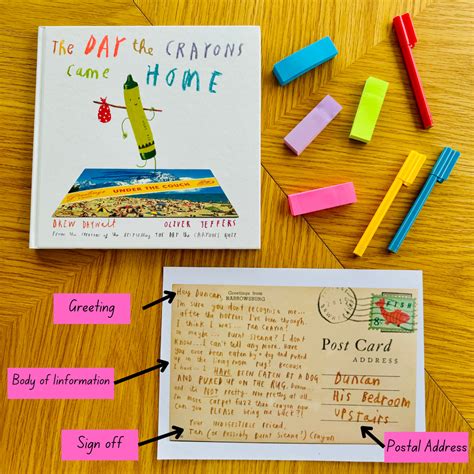 The DAY the CRAYONS
came HOME
Greetings from
UNDER THE COUCH
DREW DAYWALT OLIVER JEFFERS
From the creators of the #1 bestselling THE DAY THE CRAYONS QUIT
Greeting
Body of Iinformation
Sign off
Postal Address
Hey Duncan,
Greetings from
I'm sure you don't recognise me...
after the horrors I've been through.
I think I was... Tan crayon?
or maybe... Burnt Sienna? I don't
know... I can't tell any more. Have
you ever been eaten by a dog and puked up
on the living room rug? Because
I have... I HAVE BEEN EATEN BY A DOG
AND PUKED UP ON THE RUG, Duncan...
and it's NOT pretty. Not pretty at all.
I'm more carpet fuzz than crayon now.
Can you PLEASE bring me back?!
Your INDIGESTIBLE friend,
Tan (or possibly Burnt Sienna?) Crayon
FISH
8c
Post Card
ADDRESS
Duncan
His Bedroom
Upstairs